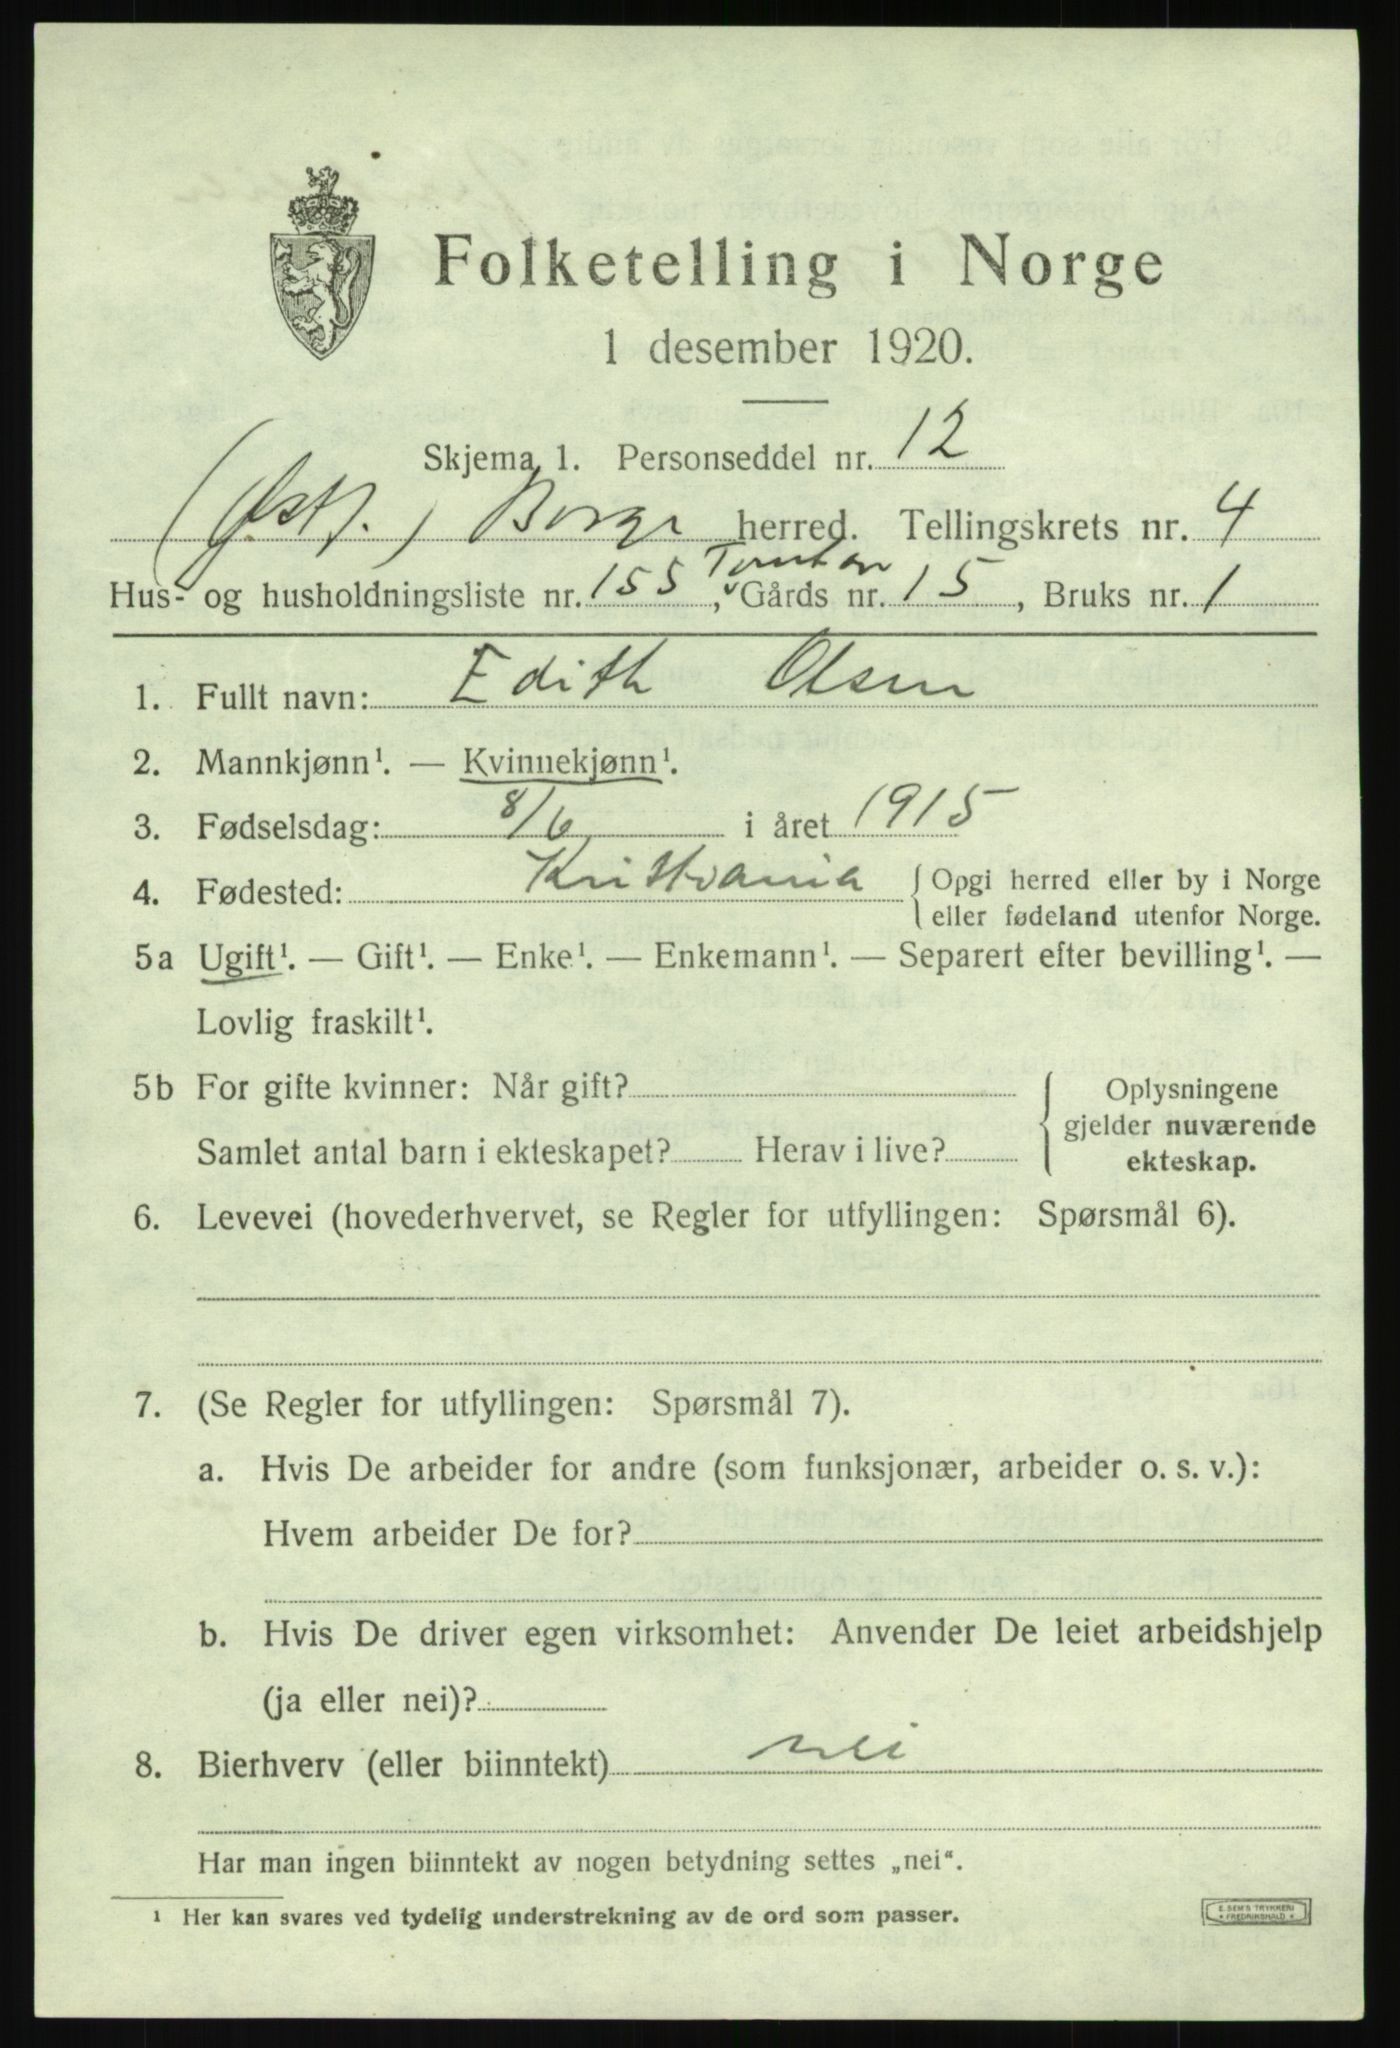 Folketelling i Norge
1 desember 1920.
Skjema 1. Personseddel nr. 12
(Østf.) Borge herred. Tellingskrets nr. 4
Hus- og husholdningsliste nr. 155, Gårds nr. 15, Bruks nr. 1
1. Fullt navn: Edith Olsen
2. Mannkjønn¹. — Kvinnekjønn¹.
3. Fødselsdag: 8/6 i året 1915
4. Fødested: Kristiania { Opgi herred eller by i Norge
eller fødeland utenfor Norge.
5a Ugift¹. — Gift¹. — Enke¹. — Enkemann¹. — Separert efter bevilling¹. —
Lovlig fraskilt¹.
5b For gifte kvinner: Når gift?
Samlet antal barn i ekteskapet? Herav i live?
Oplysningene
gjelder nuværende
ekteskap.
6. Levevei (hovederhvervet, se Regler for utfyllingen: Spørsmål 6).
7. (Se Regler for utfyllingen: Spørsmål 7).
a. Hvis De arbeider for andre (som funksjonær, arbeider o. s. v.):
Hvem arbeider De for?
b. Hvis De driver egen virksomhet: Anvender De leiet arbeidshjelp
(ja eller nei)?
8. Bierhverv (eller biinntekt) nei
Har man ingen biinntekt av nogen betydning settes „nei“.
¹ Her kan svares ved tydelig understrekning av de ord som passer.
E. SEM'S TRYKKERI
FREDRIKSHALD